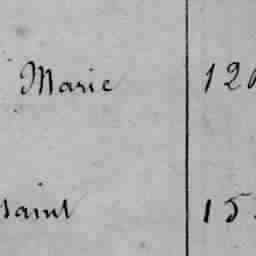 Marie 12
saint 15